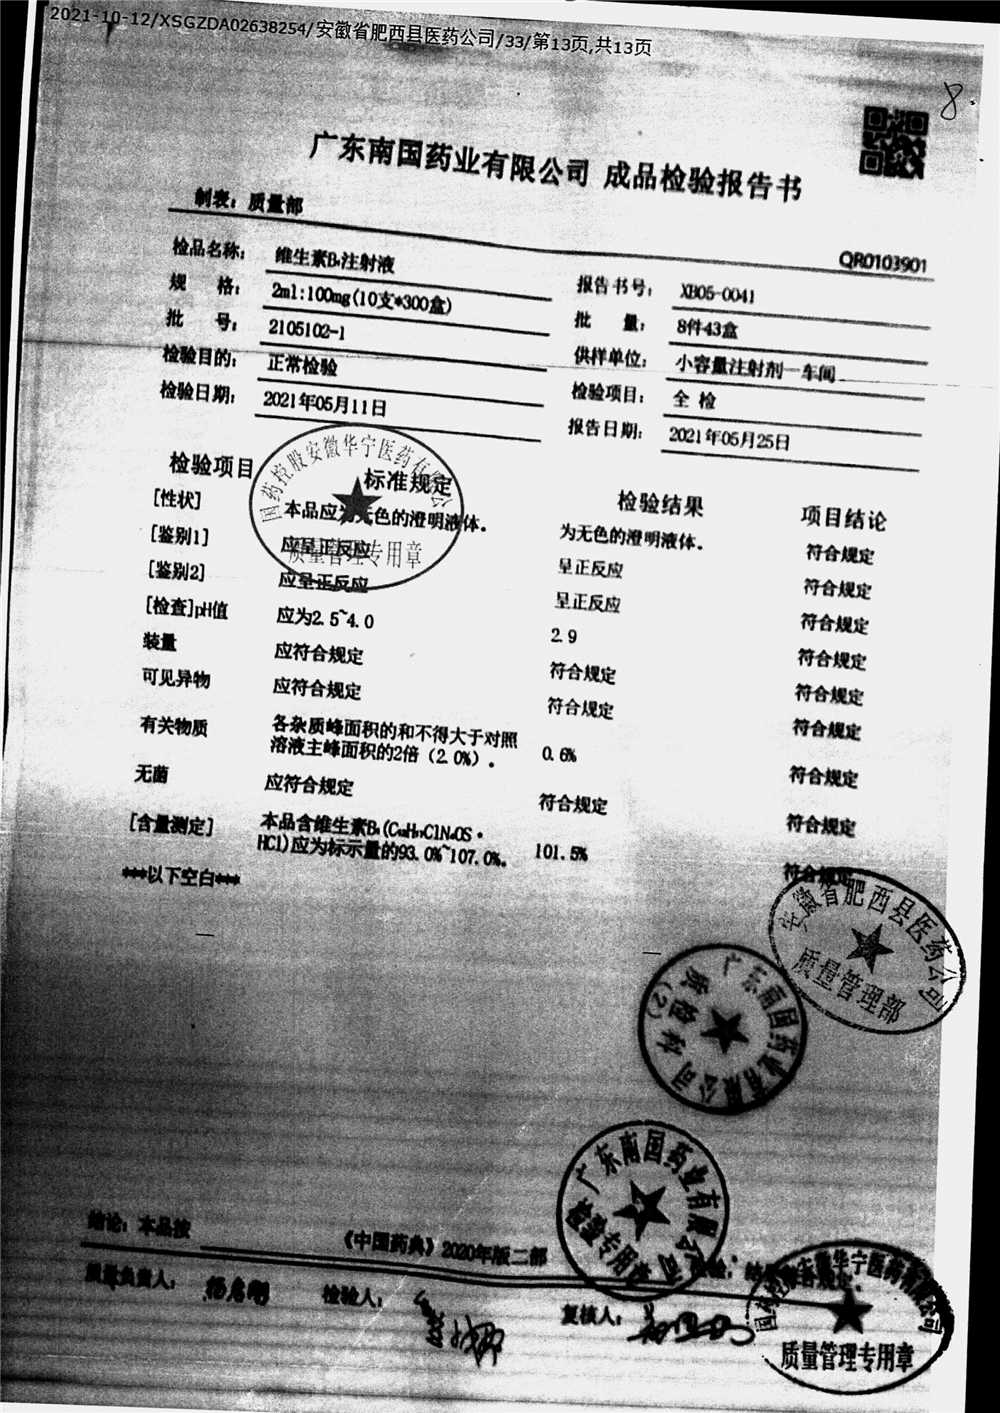 2021-10-12/XSGZDA02638254/安徽省肥西县医药公司/33/第13页,共13页
8.
广东南国药业有限公司 成品检验报告书
制表：质量部
QR0103901
检品名称： 维生素B₁注射液 报告书号： XB05-0041
规 格： 2ml:100mg(10支*300盒) 批 量： 8件43盒
批 号： 2105102-1 供样单位： 小容量注射剂一车间
检验目的： 正常检验 检验项目： 全 检
检验日期： 2021年05月11日 报告日期： 2021年05月25日
检验项目 标准规定 检验结果 项目结论
[性状] 本品应为无色的澄明液体。 为无色的澄明液体。 符合规定
[鉴别1] 应呈正反应 呈正反应 符合规定
[鉴别2] 应呈正反应 呈正反应 符合规定
[检查]pH值 应为2.5~4.0 2.9 符合规定
装量 应符合规定 符合规定 符合规定
可见异物 应符合规定 符合规定 符合规定
有关物质 各杂质峰面积的和不得大于对照
溶液主峰面积的2倍（2.0%）。 0.6% 符合规定
无菌 应符合规定 符合规定 符合规定
[含量测定] 本品含维生素B₁(C₁₂H₁₇ClN₄OS·
HCl)应为标示量的93.0%~107.0%。 101.5% 符合规定
***以下空白***
国药控股安徽华宁医药有限公
质量管理专用章
安徽省肥西县医药公司
质量管理部
广东南国药业有限公司
质检科
(2)
广东南国药业有限公司
检验专用章
结论：本品按 《中国药典》2020年版二部
质量负责人： 检验人： 复核人：
国药控股安徽华宁医药有限公司
质量管理专用章